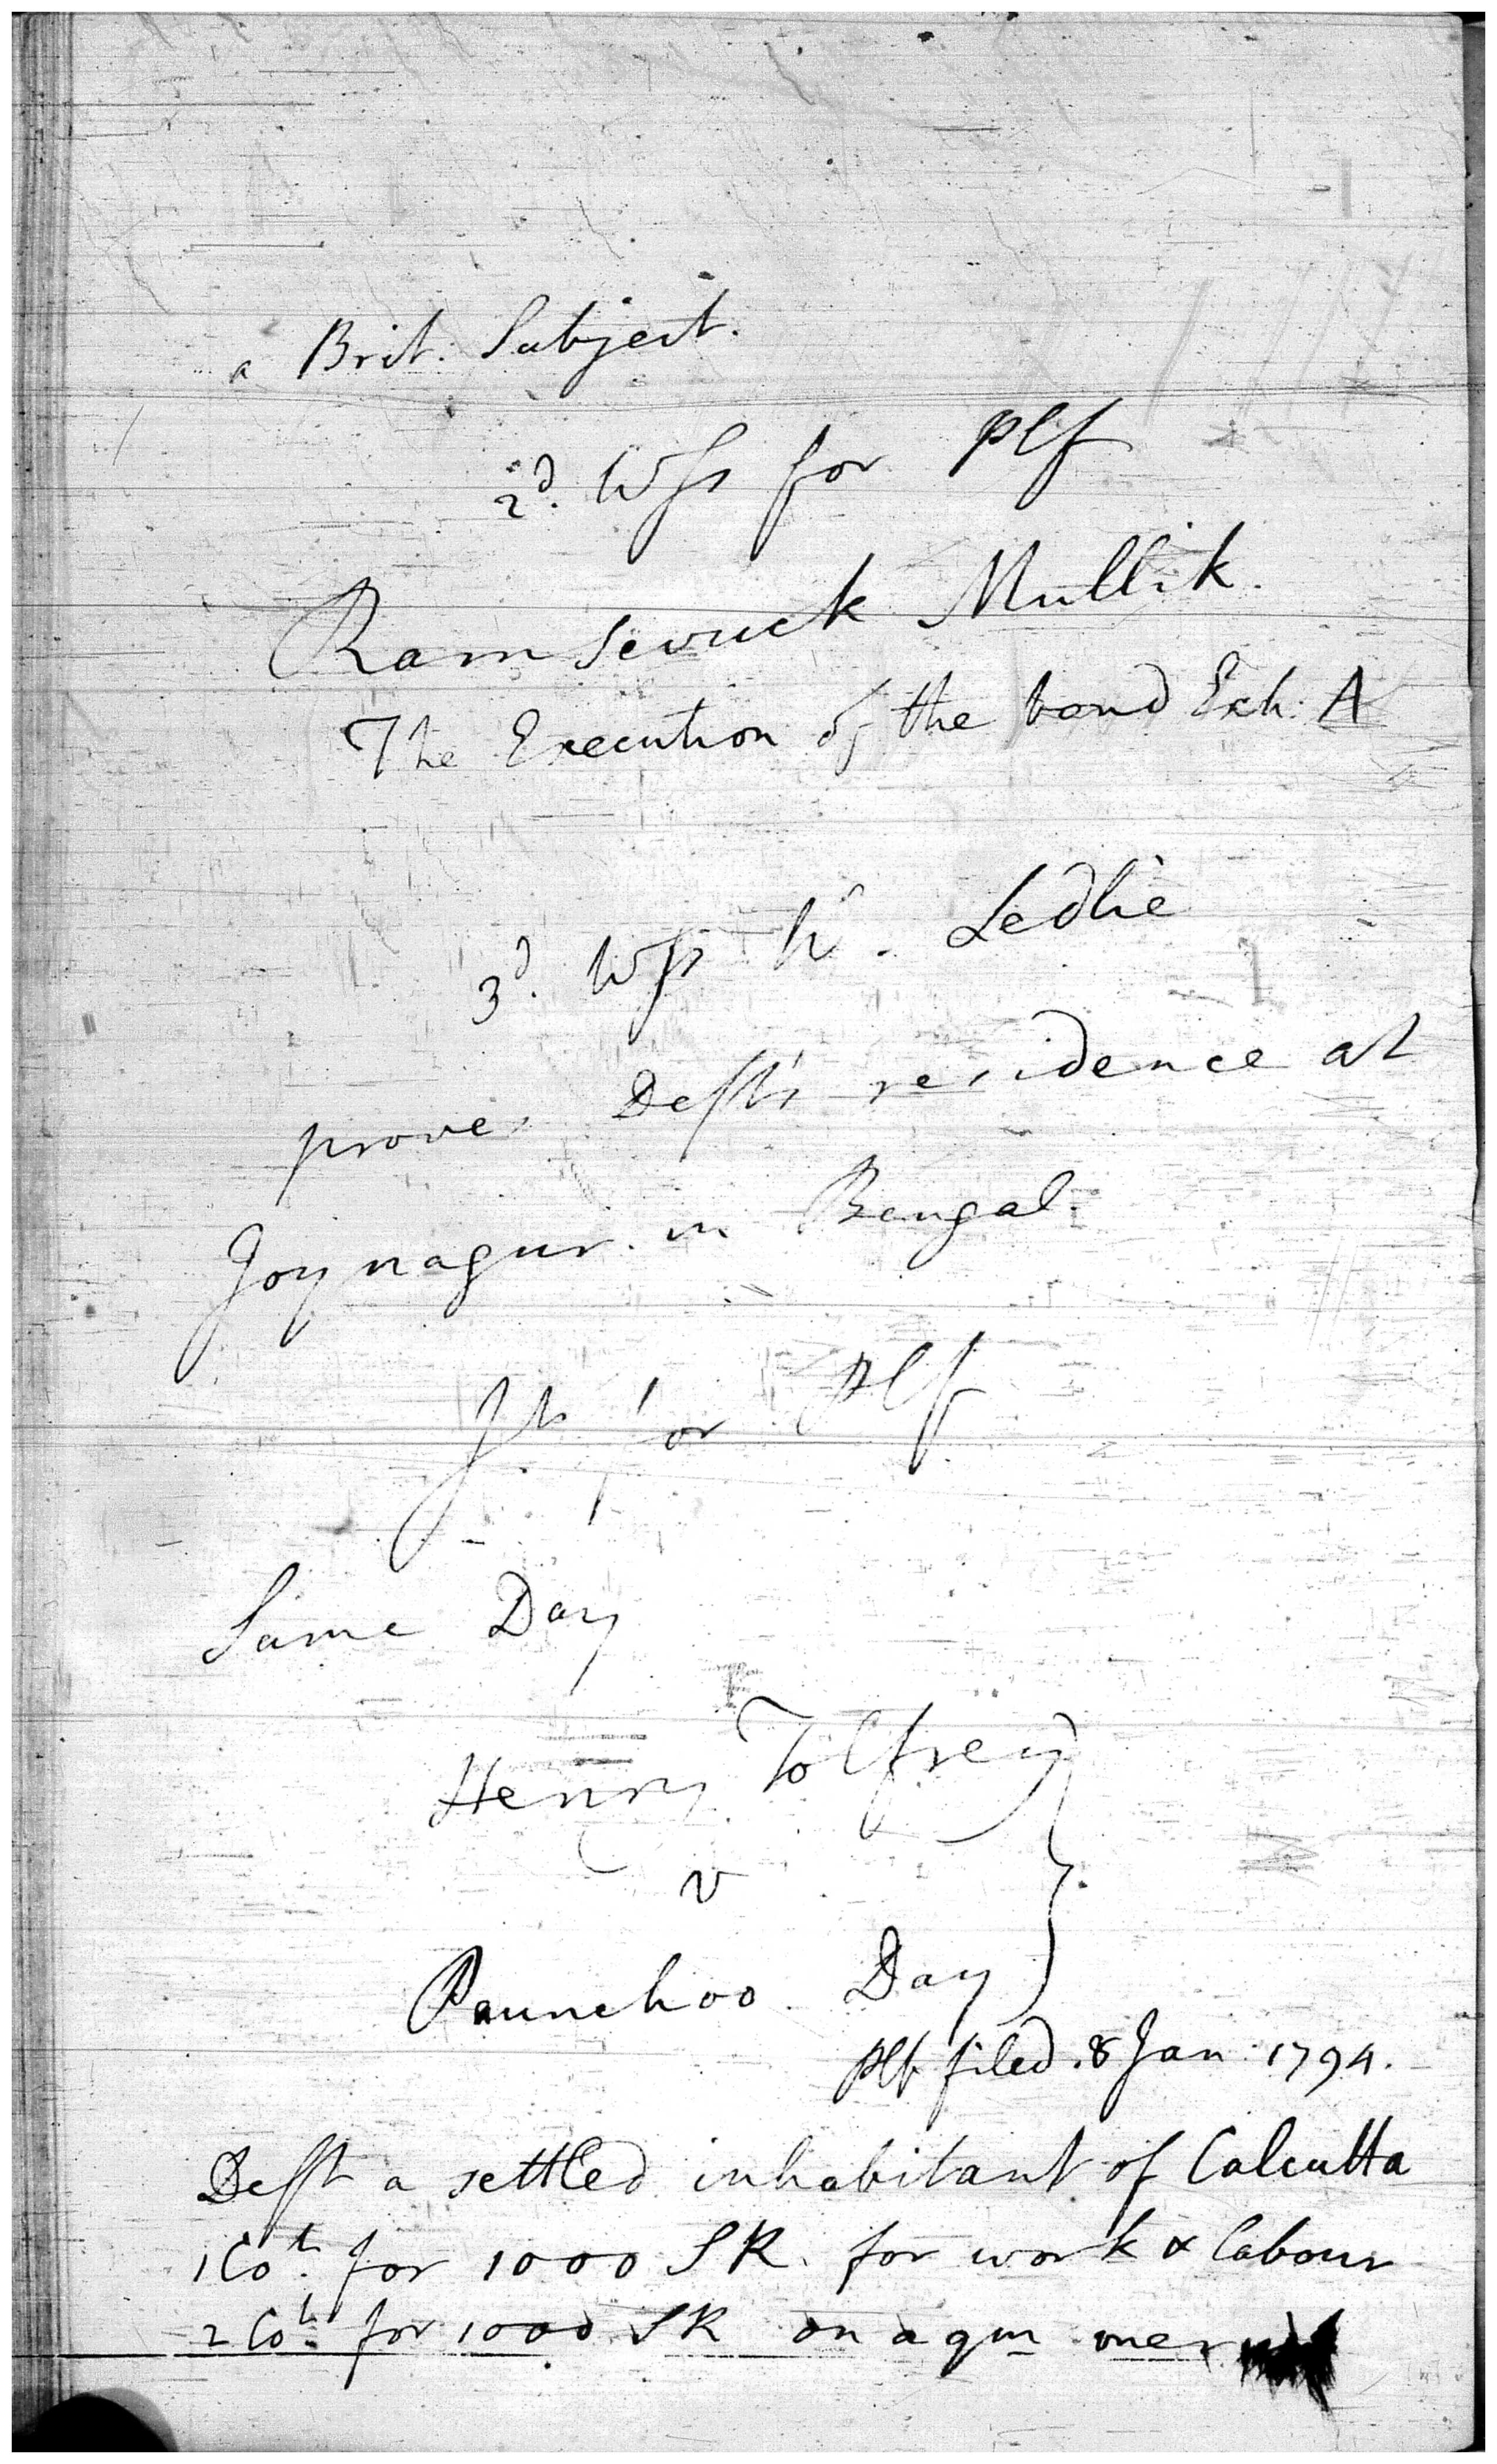 a Brit. Subject.
2d. Wss for Plf
Ram Sevuck Mullik.
The Execution of the bond Exh: A
3d. Wss Ledlie
proves Deft's residence at
Joynagur in Bengal.
Jt. for Plf
Same Day
Henry Tolfrey
v
Paunchoo Day
Plt filed 8 Jan: 1794.
Deft a settled inhabitant of Calcutta
1 Cot. for 1000 SR. for work & labour
2 Cot. for 1000 SR on a qm mer